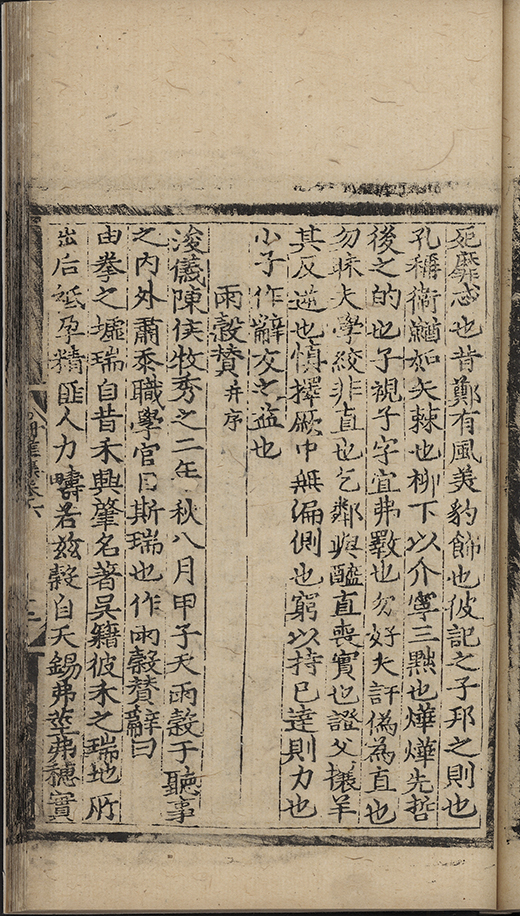 死靡忒也昔鄭有風美豹飾也彼記之子邦之則也
孔稱衛蝤如矢棘也柳下以介寧三黜也燁燁先哲
後之的也子視子字宜弗斁也勿好夫訐偽為直也
勿昧夫學絞非直也乞鄰與醯直喪實也證父攘羊
其反逆也慎擇厥中無偏側也窮以持巳達則力也
小子作辭友之益也
雨穀贊并序
浚儀陳侯牧秀之二年秋八月甲子天雨穀于聽事
之内外肅忝職學官曰斯瑞也作雨穀贊辭曰
由拳之墟瑞自昔禾興肇名著吳籍彼禾之瑞地所
出后祗孕精匪人力疇若玆穀自天錫弗莖弗穗實
集卷六